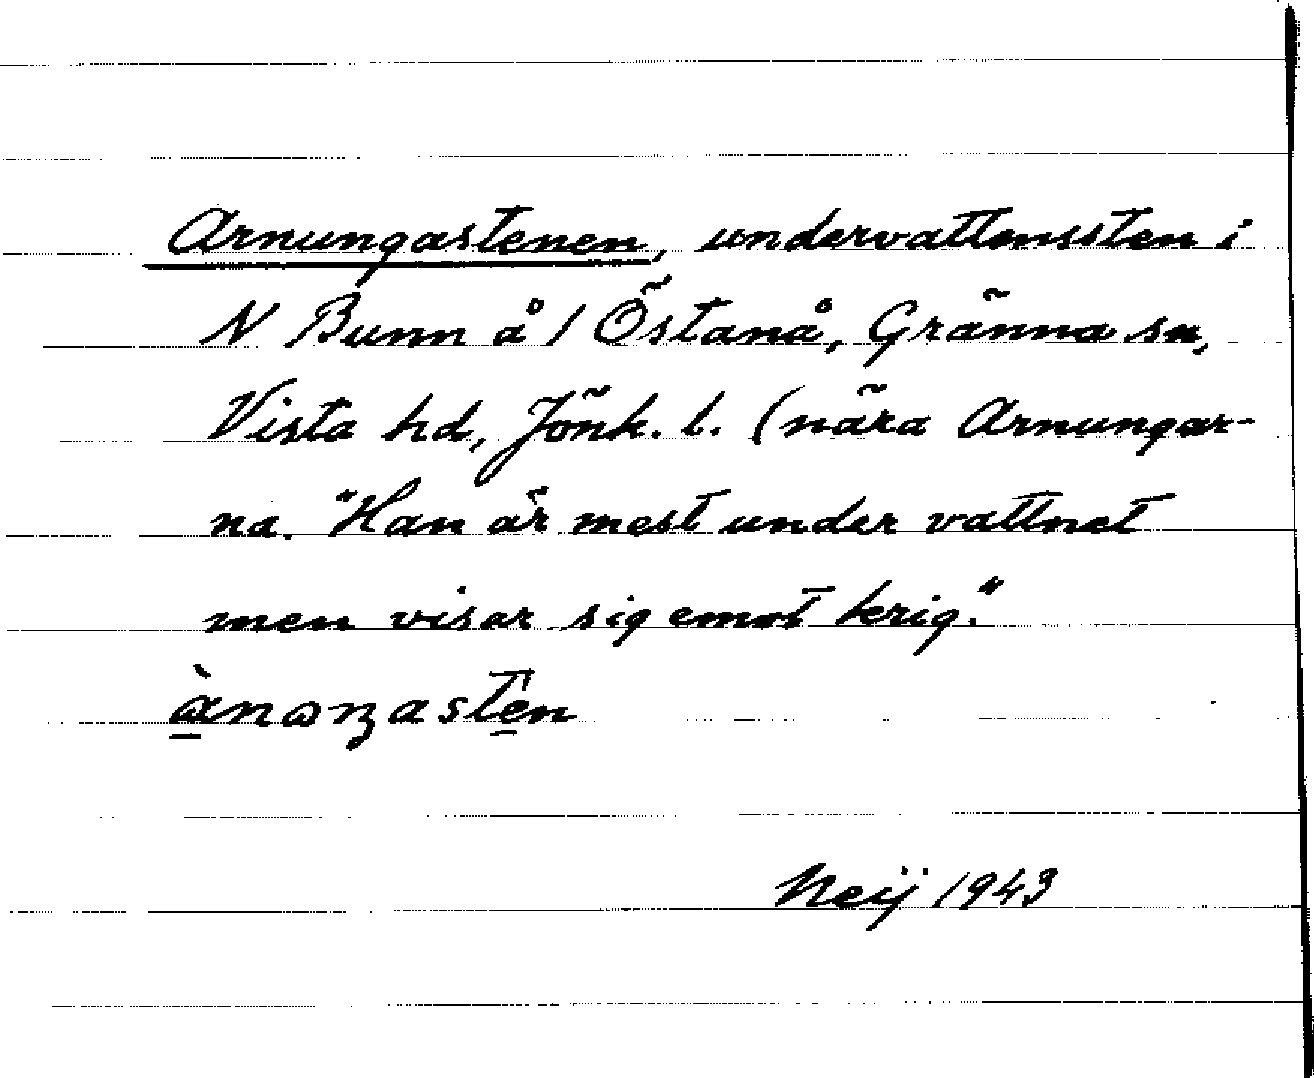 Arnungastenen, undervattensten i
N Bunn å / Östanå, Gränna sn,
Vista hd, Jönk. l. (nära Arnungar-
na. "Han är mest under vattnet
men visar sig emot krig."
Neij 1943